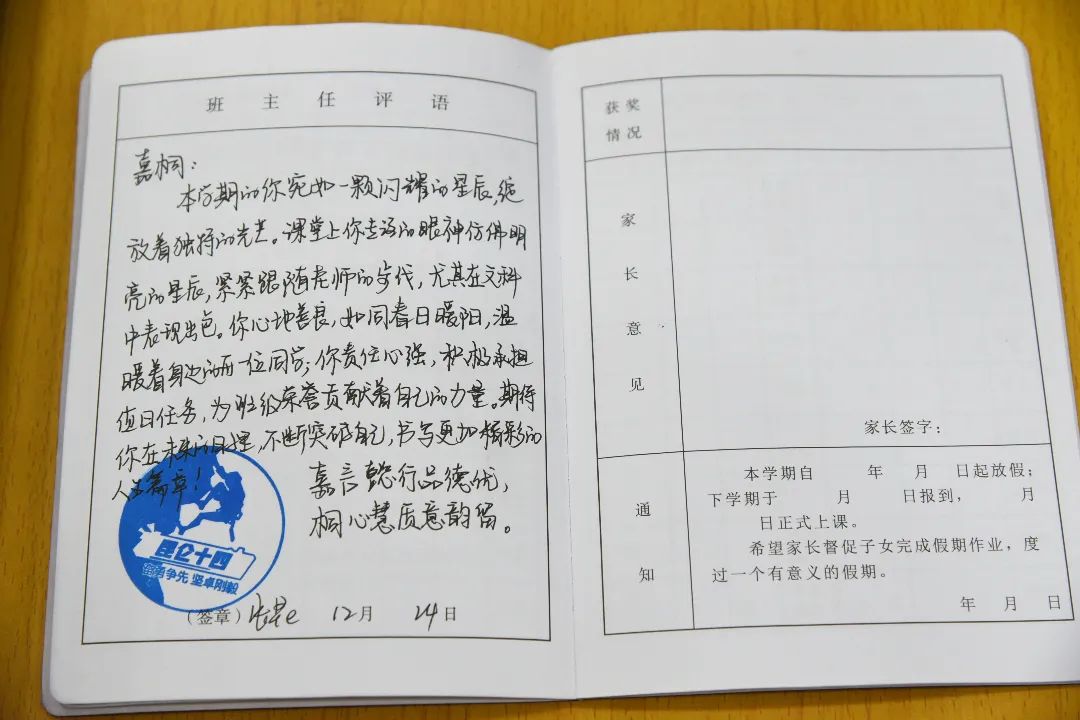 班主任评语
嘉桐：
本学期的你宛如一颗闪耀的星辰，绽
放着独特的光芒。课堂上你专注的眼神仿佛明
亮的星辰，紧紧跟随老师的步伐，尤其在文科
中表现出色。你心地善良，如同春日暖阳，温
暖着身边的每一位同学；你责任心强，积极承担
值日任务，为班级荣誉贡献着自己的力量。期待
你在未来的日子里，不断突破自己，书写更加精彩的
人生篇章！
嘉言懿行品德优，
桐心慧质意韵留。
昆仑十四
奋勇争先 坚卓刚毅
（签章） 12月 24日
获奖
情况
家长意见
家长签字：
通知
本学期自 年 月 日起放假；
下学期于 月 日报到， 月
日正式上课。
希望家长督促子女完成假期作业，度
过一个有意义的假期。
年 月 日